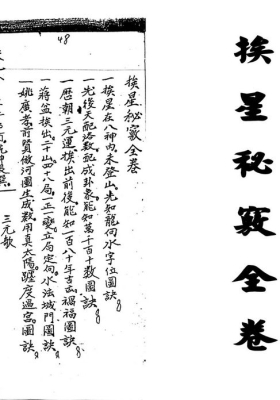 挨星秘竅全卷
48
挨星秘竅全卷
一挨星在八神內未登山先知龍向水字位圖訣
一先後天配洛數配成卦象能知萬千百十數圖訣
一歷朝三元運挨出前後能知一百八十年吉凶禍福圖訣
一蔣盤挨出二十四山四十八局一正一變立局定向水法城門圖訣
一姚廣孝前賢做河圖生成數用真太陽躔度過宮圖訣
三元敬